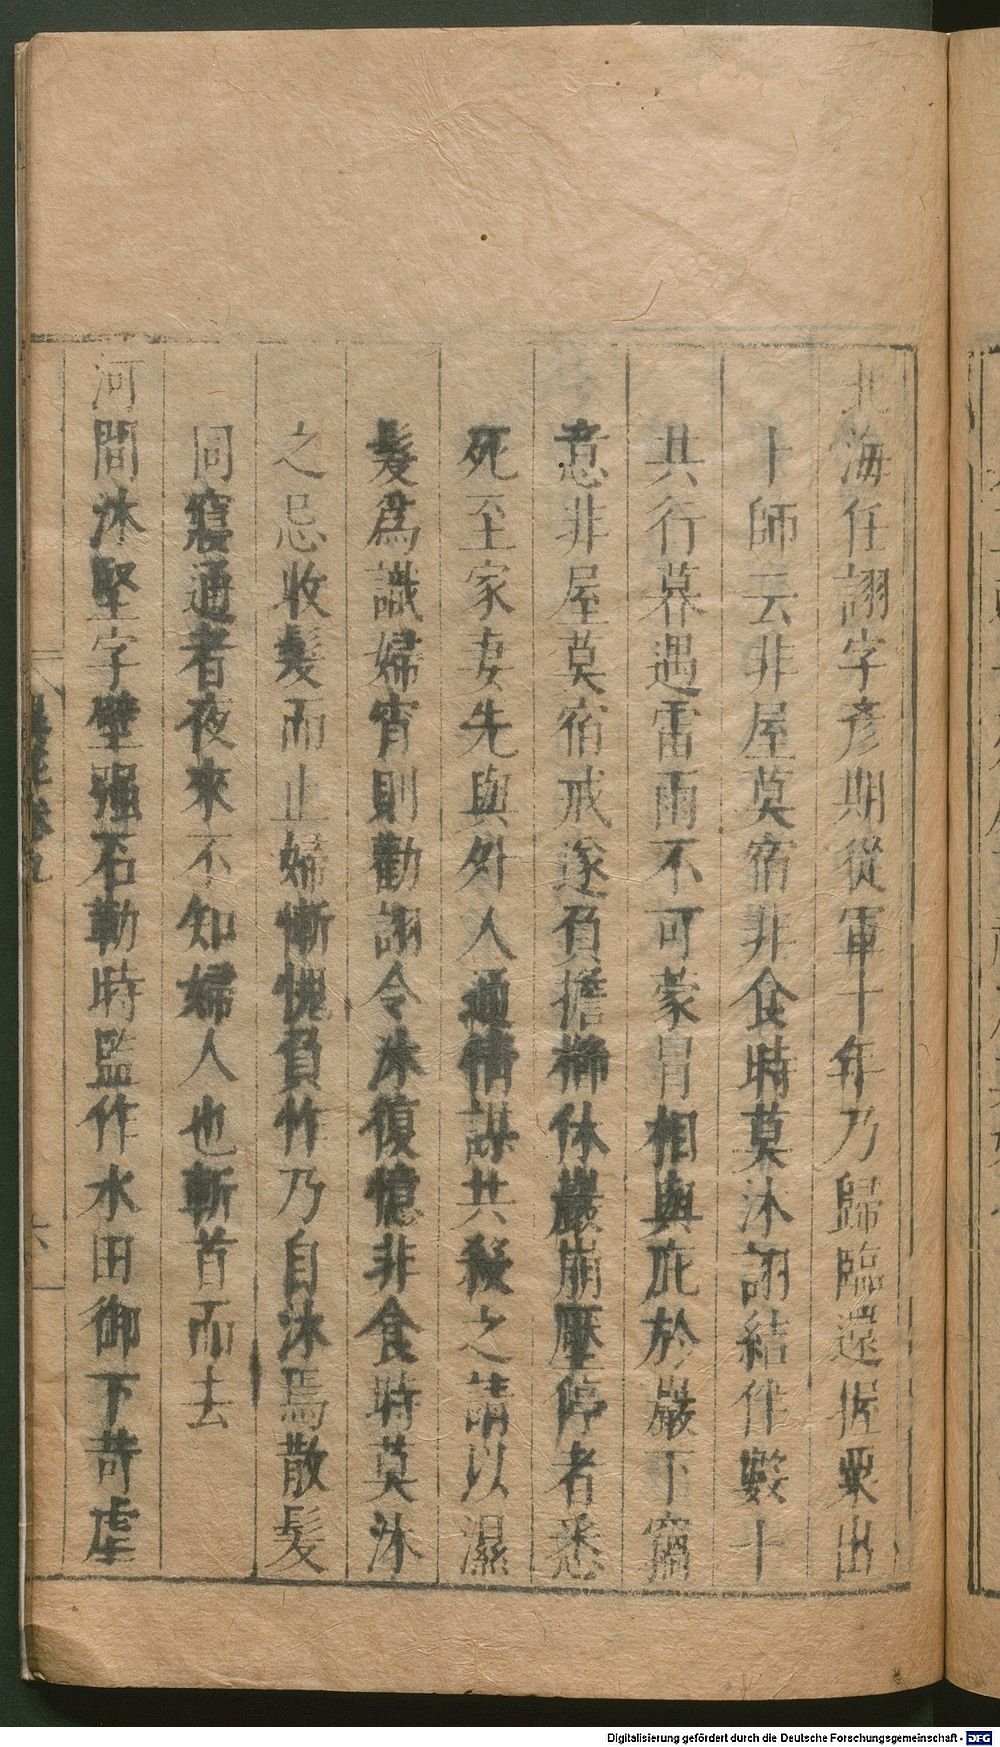 北海任詡字彥期從軍十年乃歸臨還握粟出
卜師云非屋莫宿非食時莫沐詡結伴數十
共行暮遇雷雨不可蒙冒相與庇於巖下竊
意非屋莫宿戒遂負擔櫛休巖崩壓停者悉
死至家妻先與外人通情謀共殺之請以濕
髮爲識婦宵則勸詡令沐復憶非食時莫沐
之忌收髮而止婦慚愧負作乃自沐焉散髮
同寢通者夜來不知婦人也斬首而去
河間沐堅字壁強石勒時監作水田御下苛虐
異苑卷九
六
Digitalisierung gefördert durch die Deutsche Forschungsgemeinschaft - DFG